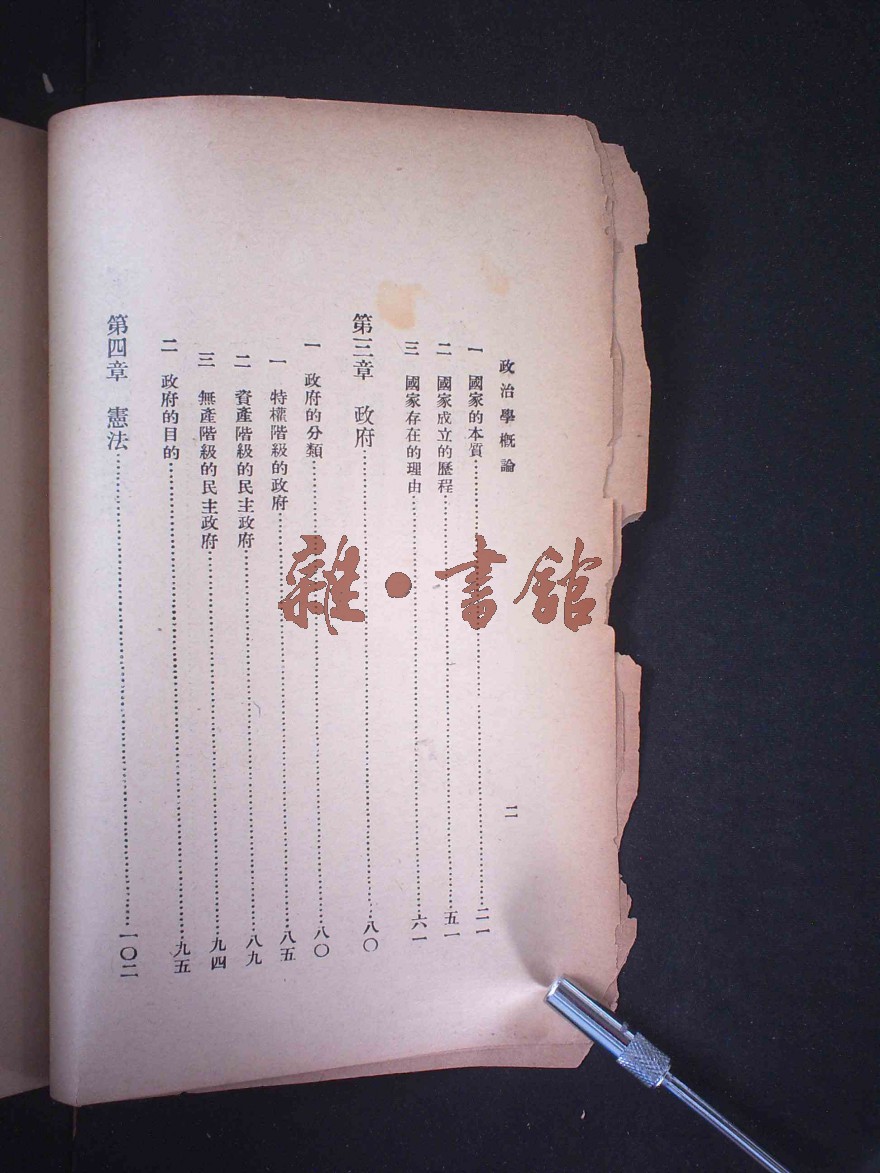 政治學概論
二
一 國家的本質……二一
二 國家成立的歷程……五一
三 國家存在的理由……六一
第三章 政府……八〇
一 政府的分類……八〇
一 特權階級的政府……八五
二 資產階級的民主政府……八九
三 無產階級的民主政府……九四
二 政府的目的……九五
第四章 憲法……一〇二
雜·書館